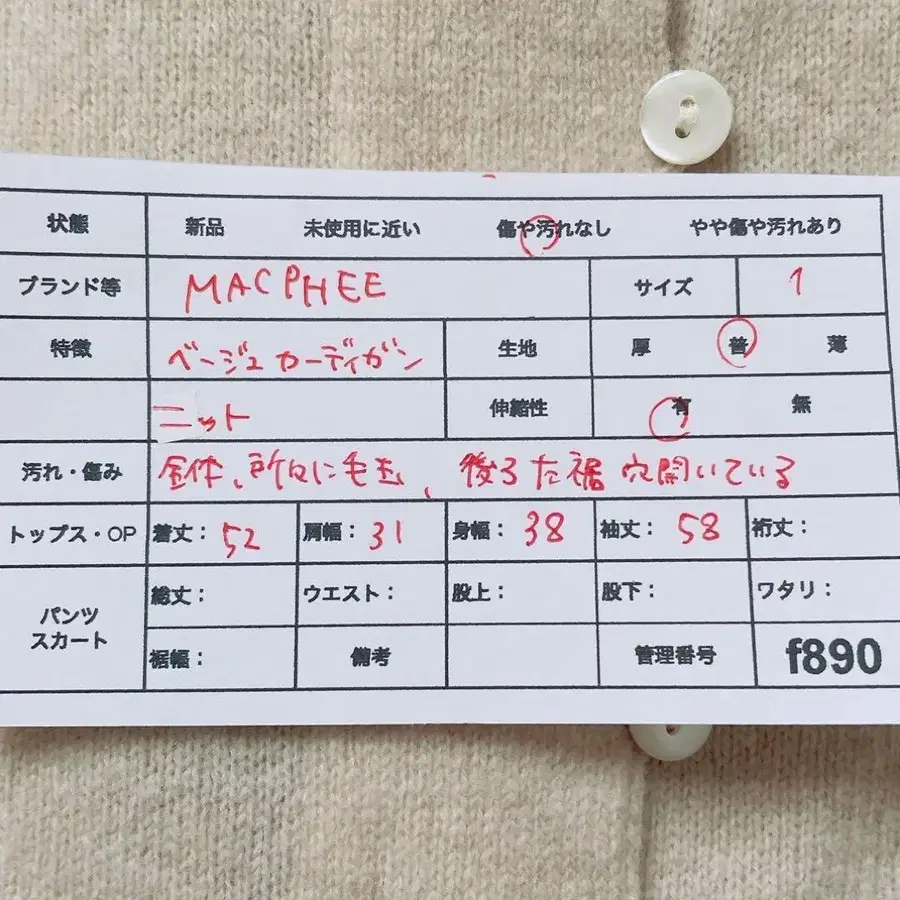 状態 新品 未使用に近い 傷や汚れなし やや傷や汚れあり
ブランド等 MACPHEE サイズ 1
特徴 ベージュ カーディガン 生地 厚 普 薄
ニット 伸縮性 有 無
汚れ・傷み 全体、所々に毛玉、後ろ左裾 穴開いている
トップス・OP 着丈： 52 肩幅： 31 身幅： 38 袖丈： 58 裄丈：
パンツ スカート 総丈： ウエスト： 股上： 股下： ワタリ：
裾幅： 備考 管理番号 f890